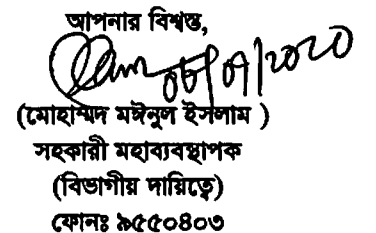 আপনার বিশ্বস্ত,
(মোহাম্মদ মঈনুল ইসলাম )
সহকারী মহাব্যবস্থাপক
(বিভাগীয় দায়িত্বে)
ফোনঃ ৯৫৫০৪০৩